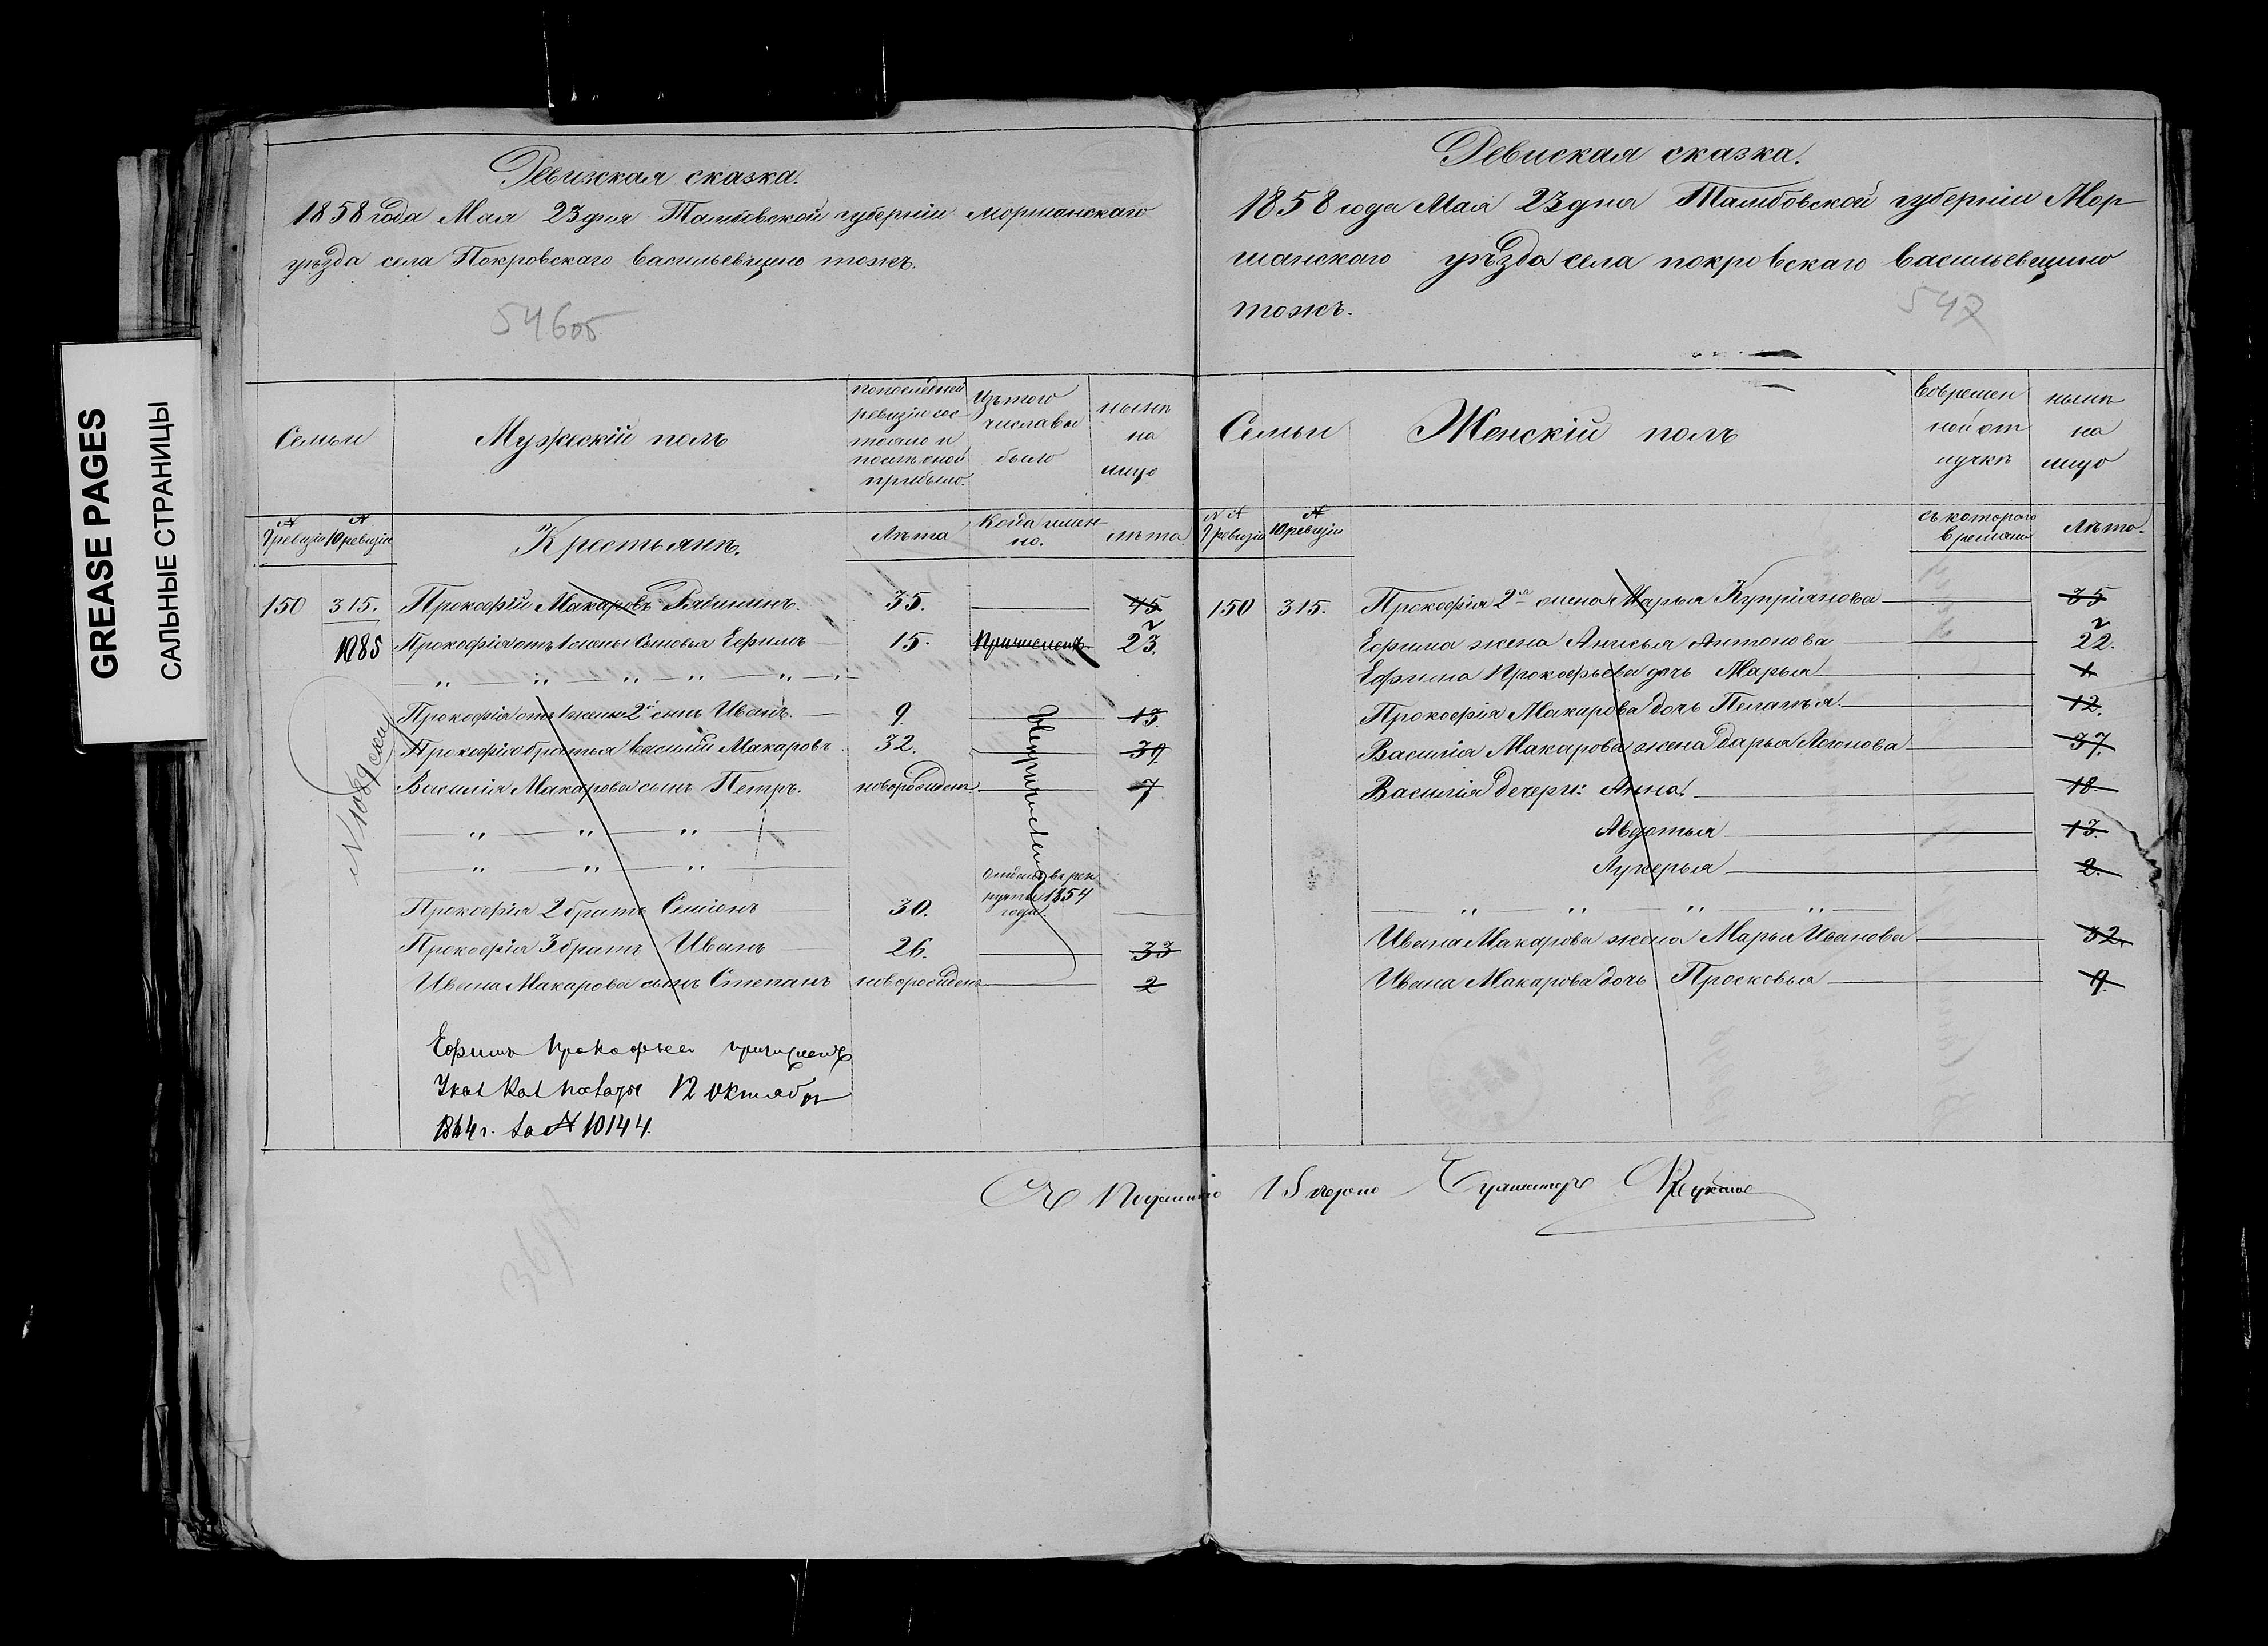 GREASE PAGES
САЛЬНЫЕ СТРАНИЦЫ
Ревизская сказка.
1858 года Мая 23 дня Тамбовской губерніи Моршанскаго
уѣзда села Покровскаго Васильевщено тожъ.
546об
Семьи
Мужескій полъ
Попослѣдней ревизіи состояло и послѣ оной прибыло.
Изъ того числа выбыло
нынѣ на лицо
№ 9 ревизіи
№ 10 ревизіи
Крестьянѣ.
Лѣта
Когда имянно.
лѣта
150 315. Прокофій Макаровъ Рябининъ. 35. 45
1085 Прокофія отъ 1 жены сыновья Ефимъ 15. Причисленъ. 23.
Прокофія отъ 1 жены 2й сынъ Иванъ. 9. 17.
Прокофія братья Василий Макаровъ 32. 39
Василія Макарова сынъ Петръ. новорожденъ 7
Прокофія 2 братъ Семіонъ 30. Отданъ в рекруты 1854 года.
Прокофія 3 братъ Иванъ 26. 33
Ивана Макарова сынъ Степанъ новорожденъ 2
№ 1089 ску
Неупричисленъ
Ефимъ Прокофьев причисленъ
Указ Каз Палаты 12 октября
1864 г. за № 10144.
Ревиская сказка.
1858 года Мая 23 дня Тамбовской губерніи Мор
шанскаго уѣзда села покровскаго Васильевщино
тожъ.
547
Семьи
Женскій полъ
Вовременной отлучкѣ
нынѣ на лицо
№ 9 ревизіи
№ 10 ревизіи
съ котораго времяни
Лѣта.
150 315. Прокофія 2я жена Марья Купріянова 35
Ефима жена Анисья Антонова 22.
Ефима Прокофьева дочь Марья 1
Прокофія Макарова дочь Пелагѣя. 12.
Василія Макарова жена Дарья Логонова 37.
Василія дечери: Анна. 18.
Авдотья 13.
Лукерья 2.
Ивана Макарова жена Марья Иванова 32.
Ивана Макарова дочь Просковья 9.
Съ Подлинно Верно Бурмистръ